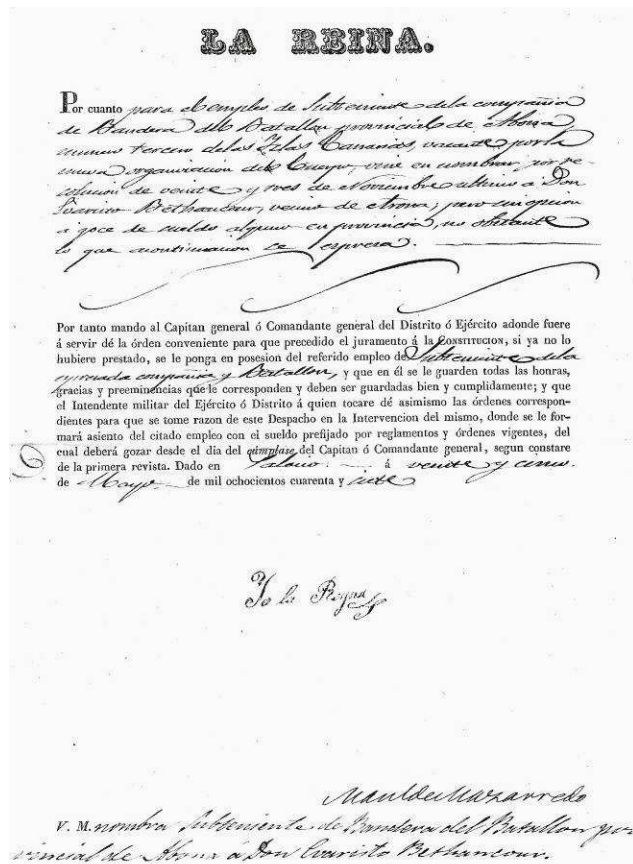 LA REINA.
Por cuanto para el empleo de Subteniente de la compañia
de Bandera del Batallon provincial de Abona
numero tercero de las Islas Canarias, vacante por la
nueva organizacion del Cuerpo, vine en nombrar por re-
solucion de veinte y tres de Noviembre ultimo a Don
Evaristo Bethancour, vecino de Arona; pero sin opcion
a goce de sueldo alguno en provincia, no obstante
lo que a continuacion se espresa.
Por tanto mando al Capitan general ó Comandante general del Distrito ó Ejército adonde fuere
á servir dé la órden conveniente para que precedido el juramento á la CONSTITUCION, si ya no lo
hubiere prestado, se le ponga en posesion del referido empleo de Subteniente de la
espresada compañia y Batallon, y que en él se le guarden todas las honras,
gracias y preeminencias que le corresponden y deben ser guardadas bien y cumplidamente; y que
el Intendente militar del Ejército ó Distrito á quien tocare dé asimismo las órdenes correspon-
dientes para que se tome razon de este Despacho en la Intervencion del mismo, donde se le for-
mará asiento del citado empleo con el sueldo prefijado por reglamentos y órdenes vigentes, del
cual deberá gozar desde el dia del cúmplase del Capitan ó Comandante general, segun constare
de la primera revista. Dado en Palacio á veinte y cinco
de Mayo de mil ochocientos cuarenta y siete
Yo la Reyna
Man.l de Mazarredo
V. M. nombra Subteniente de Bandera del Batallon pro
vincial de Abona á Don Evaristo Bethancour.